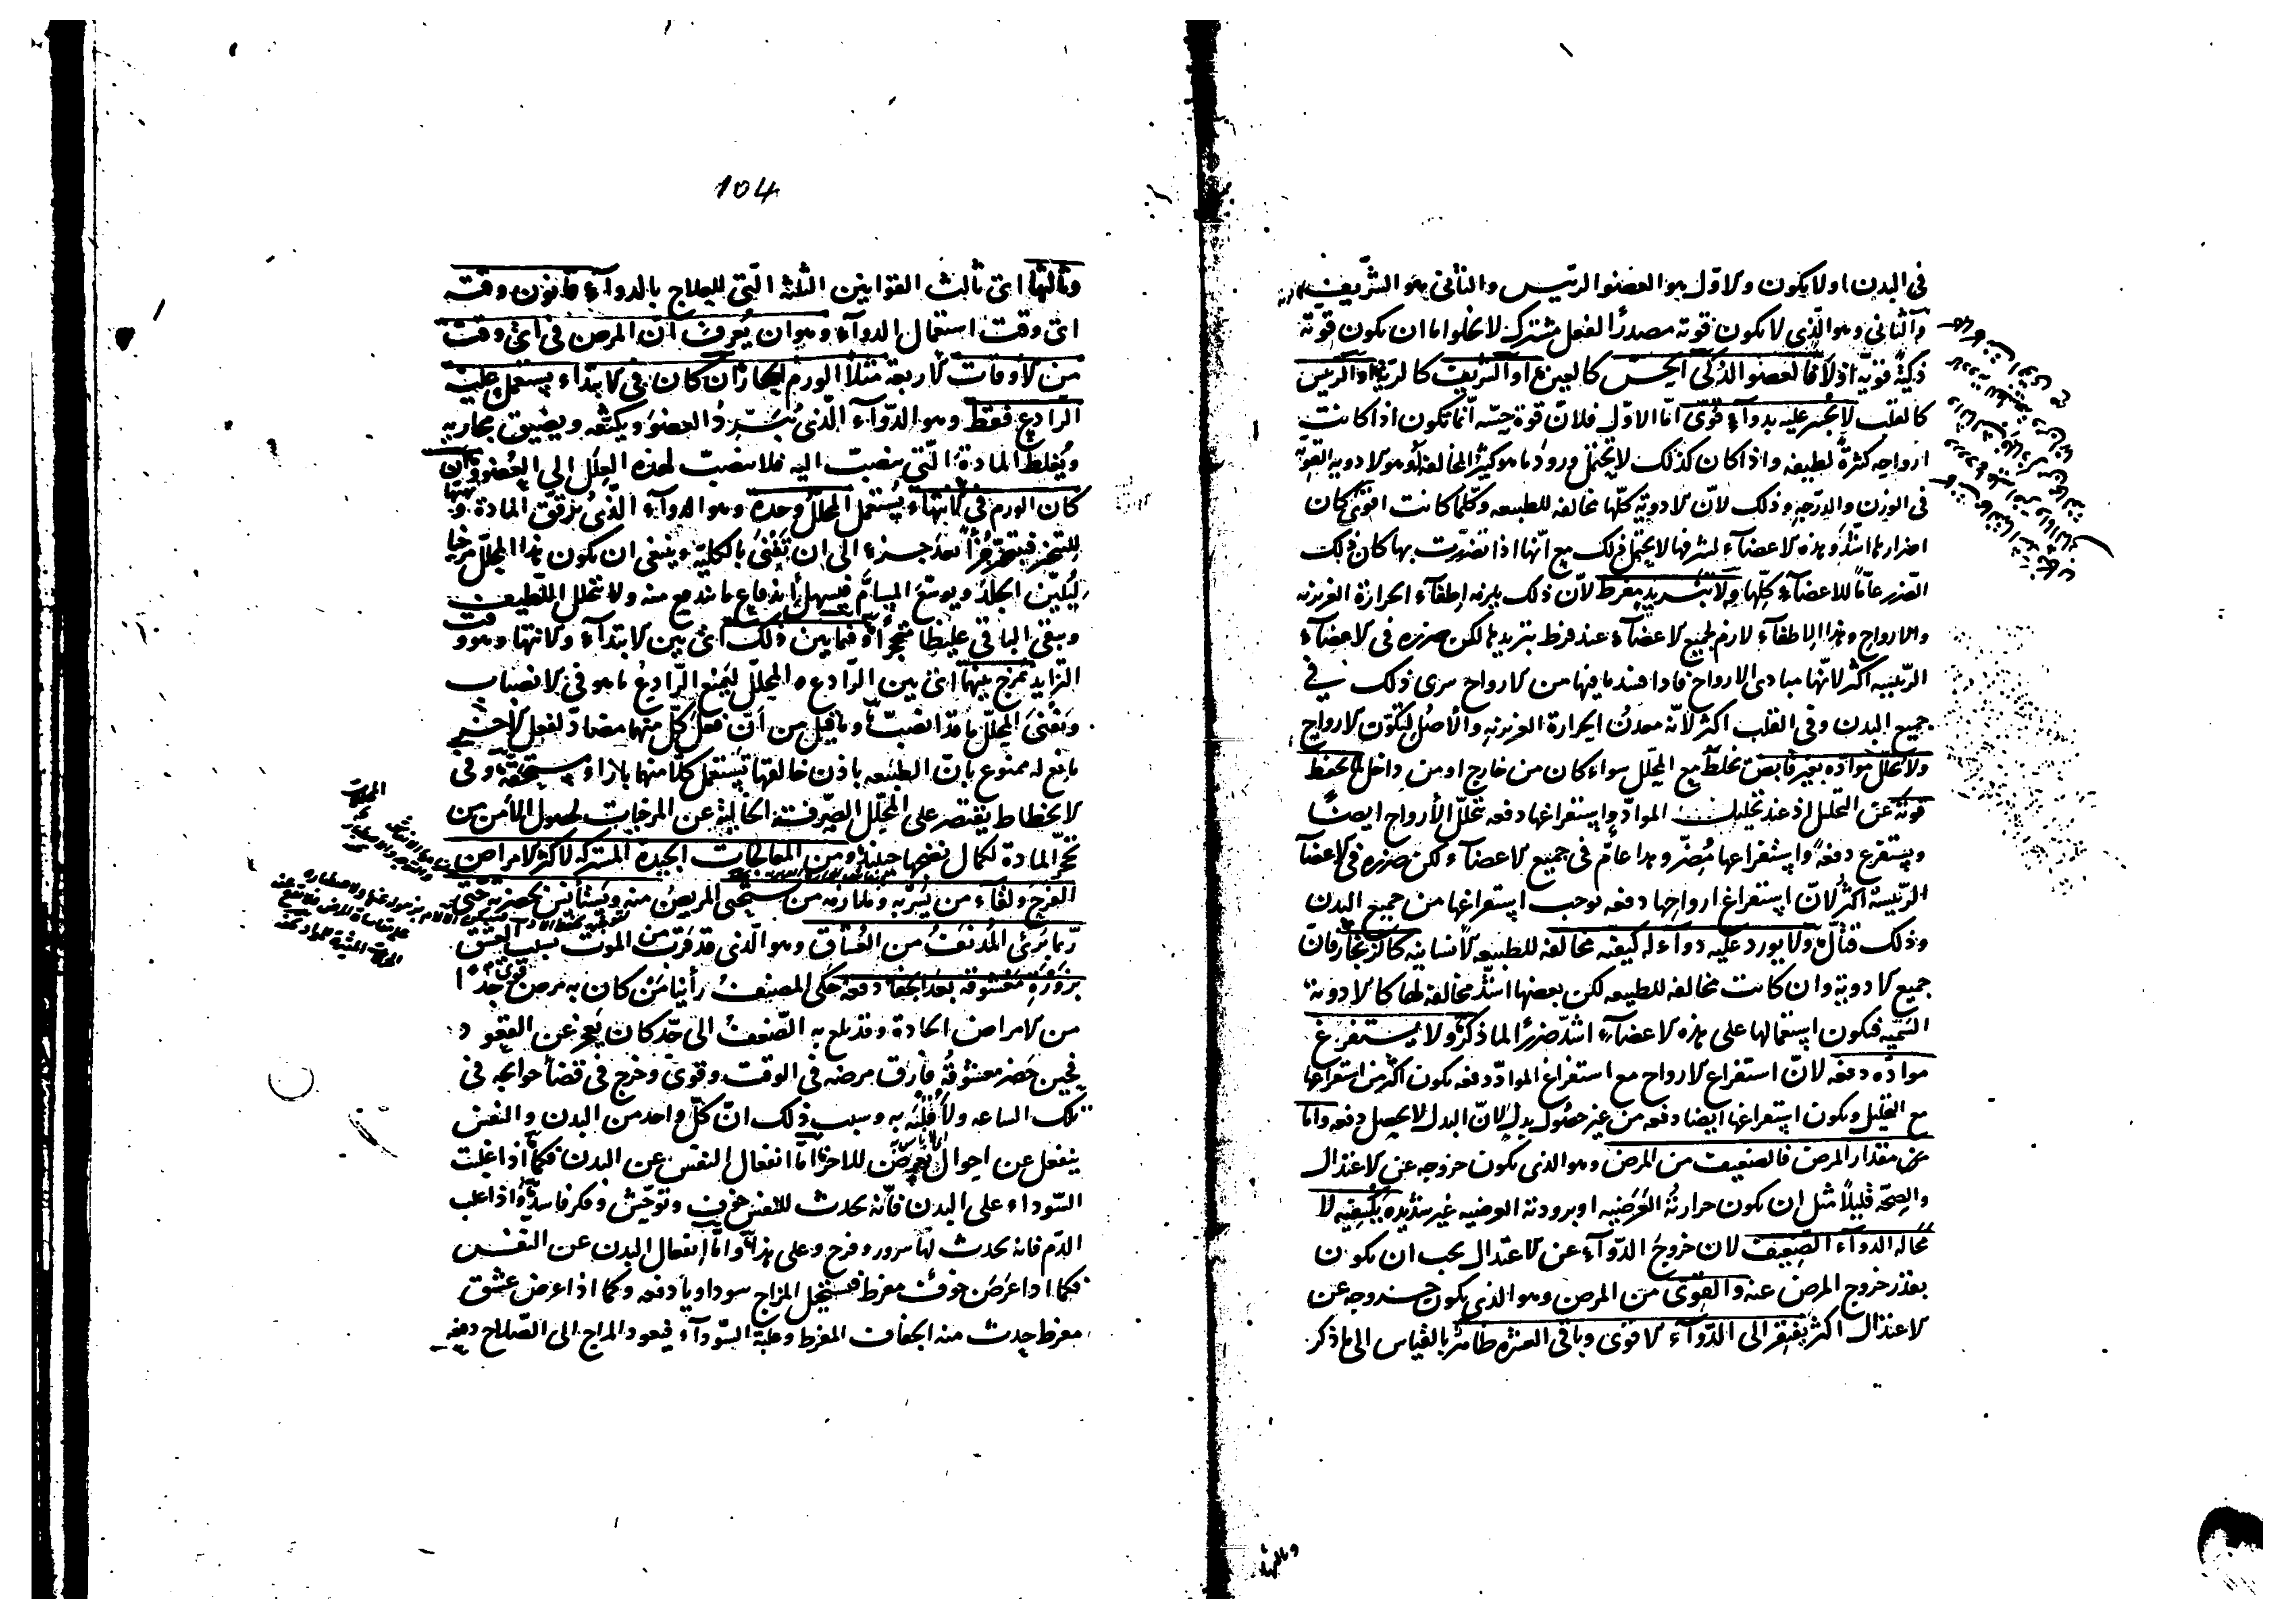 في البدن اولا يكون والاول هو العضو الرئيس والثاني هو الشريف
والثاني وهو الذي لا يكون قوته مصدرا لفعل مشترك لا يخلوا ما ان يكون قوته
ذكية قوية اولا فالعضو الذكي الحس كالعين او الشريف كالرية او الرئيس
كالقلب لا يجسر عليه بدواء قوي اما الاول فلان قوة حسه انما تكون اذا كانت
ارواحه كثيرة لطيفه واذا كان كذلك لا يحتمل ورود ما هو كثير المخالفة وهو الادويه القويه
في الوزن والدرجه وذلك لان الادوية كلها مخالفه للطبيعه وكلما كانت اقوى كان
اضرارها اشد وهذه الاعضاء لشرفها لا يحتمل ذلك مع انها اذا تضررت بها كان ذلك
الضرر عاما للاعضاء كلها ولا بتبريد مفرط لان ذلك يلزمه اطفاء الحرارة الغريزيه
والارواح وهذا الاطفاء لازم لجميع الاعضاء عند فرط تبريدها لكن ضرره في الاعضاء
الرئيسه اكثر لانها مبادي الارواح فاذا فسد ما فيها من الارواح سرى ذلك في
جميع البدن وفي القلب اكثر لانه معدن الحرارة الغريزيه والاصل لتكون الارواح
ولا تحلل مواده بغير قابض تخلط مع المحلل سواء كان من خارج او من داخل ليحفظ
قوته عن التحليل اذ عند تحليل المواد واستفراغها دفعه تتحلل الارواح ايضا
ويستفرغ دفعة واستفراغها مضر وهذا عام في جميع الاعضاء لكن ضرره في الاعضاء
الرئيسة اكثر لان استفراغ ارواحها دفعه توجب استفراغها من جميع البدن
وذلك قتال ولا يورد عليه دواء له كيفيه مخالفه للطبيعه الانسانيه كالزنجار فان
جميع الادوية وان كانت مخالفه للطبيعه لكن بعضها اشد مخالفه لها كالادوية
السميه فيكون استعمالها على هذه الاعضاء اشد ضررا لما ذكر ولا يستفرغ
مواده دفعه لان استفراغ الارواح مع استفراغ المواد دفعه يكون اكثر من استفراغها
مع القليل ويكون استفراغها ايضا دفعه من غير حصول بدل لان البدل لا يحصل دفعه واما
عن مقدار المرض فالضعيف من المرض وهو الذي يكون خروجه عن الاعتدال
والصحة قليلا مثل ان يكون حرارته العرضيه او برودته العرضيه غير شديده يكفيه لا
محاله الدواء الضعيف لان خروج الدواء عن الاعتدال يجب ان يكون
بقدر خروج المرض عنه والقوي من المرض وهو الذي يكون خروجه عن
الاعتدال اكثر يفتقر الى الدواء الاقوى وباقي العشره ظاهر بالقياس الى ما ذكر
وثالثها
104
وثالثها اي ثالث القوانين الثلثه التي للعلاج بالدواء قانون وقته
اي وقت استعمال الدواء وهو ان يعرف ان المرض في اي وقت
من الاوقات الاربعة مثلا الورم الحار ان كان في الابتداء يستعمل عليه
الرادع فقط وهو الدواء الذي يبرد العضو ويكثفه ويضيق مجاريه
ويغلظ المادة التي تنصب اليه فلا تنصب لهذه العلل الى العضو وان
كان الورم في الانتهاء يستعمل المحلل وحده وهو الدواء الذي يرقق المادة و
للتبخر فيتبخر جزأ بعد جزء الى ان تفنى بالكلية وينبغي ان يكون هذا المحلل مرخيا
ليلين الجلد ويوسع المسام فيسهل اندفاع ما يندفع منه ولا يتحلل اللطيف
ويبقى الباقي غليظا متحجرا وفيما بين ذلك اي بين الابتداء والانتهاء وهو وقت
التزايد يمزج بينهما اي بين الرادع والمحلل ليمنع الرادع ما هو في الانصباب
ويفنى المحلل ما قد انصب وما قيل من ان فعل كل منهما مضاد لفعل الاخر
مانع له ممنوع بان الطبيعه باذن خالقها تستعمل كلا منهما بازاء مستحقه وفي
الانحطاط يقتصر على المحلل الصرفة الخالية عن المرخيات لحصول الامن من
تحجر المادة لكمال نضجها حينئذ ومن المعالجات الجيدة المشتركه لاكثر الامراض
الفرح ولقاء من يسر به وملازمه من يستحيي المريض منه ويستأنس بحضرته حتى
ربما برئ المدنف من العشاق وهو الذي قد قرب من الموت بسبب العشق
بزورة معشوقه بعد الجفاء دفعه حكى المصنف رأينا من كان به مرض قوي جدا
من الامراض الحادة وقد بلغ به الضعف الى حد كان يعجز عن القعود
فحين حضر معشوقه فارق مرضه في الوقت وقوي وخرج في قضاء حوائجه في
تلك الساعه وسبب ذلك ان كل واحد من البدن والنفس
ينفعل عن احوال تعرض للاخر اما انفعال النفس عن البدن فكما اذا غلبت
السوداء على البدن فانه يحدث للنفس خوف وتوحش وفكر فاسد واذا غلب
الدم فانه يحدث لها سرور وفرح وعلى هذا واما انفعال البدن عن النفس
فكما اذا عرض خوف مفرط فيستحيل المزاج سوداويا دفعه وكما اذا عرض عشق
مفرط حدث منه الجفاف المفرط وغلبة السوداء فيعود المزاج الى الصلاح دفعه